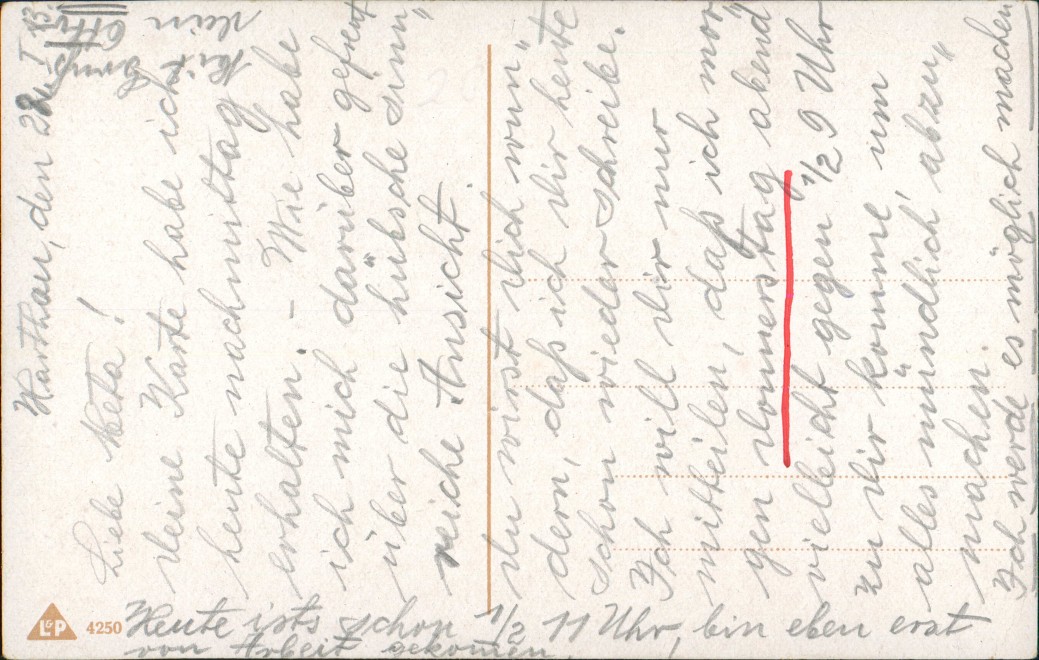 Harthau, den 28. I. 
Liebe Meta!
Deine Karte habe ich
heute nachmittag
erhalten. - Wie habe
ich mich darüber gefreut
über die hübsche sinn"
reiche Ansicht.
Du wirst dich wun"
dern, daß ich dir heute
schon wieder schreibe.
Ich will dir nur
mitteilen, daß ich mor
gen Donnerstag abend
vielleicht gegen 1/2 9 Uhr
zu dir komme, um
alles mündlich abzu"
machen.
Ich werde es möglich machen
Heute ists schon 1/2 11 Uhr, bin eben erst
von Arbeit gekommen.
Mit
Gruß
Dein
Otto
L&P 4250